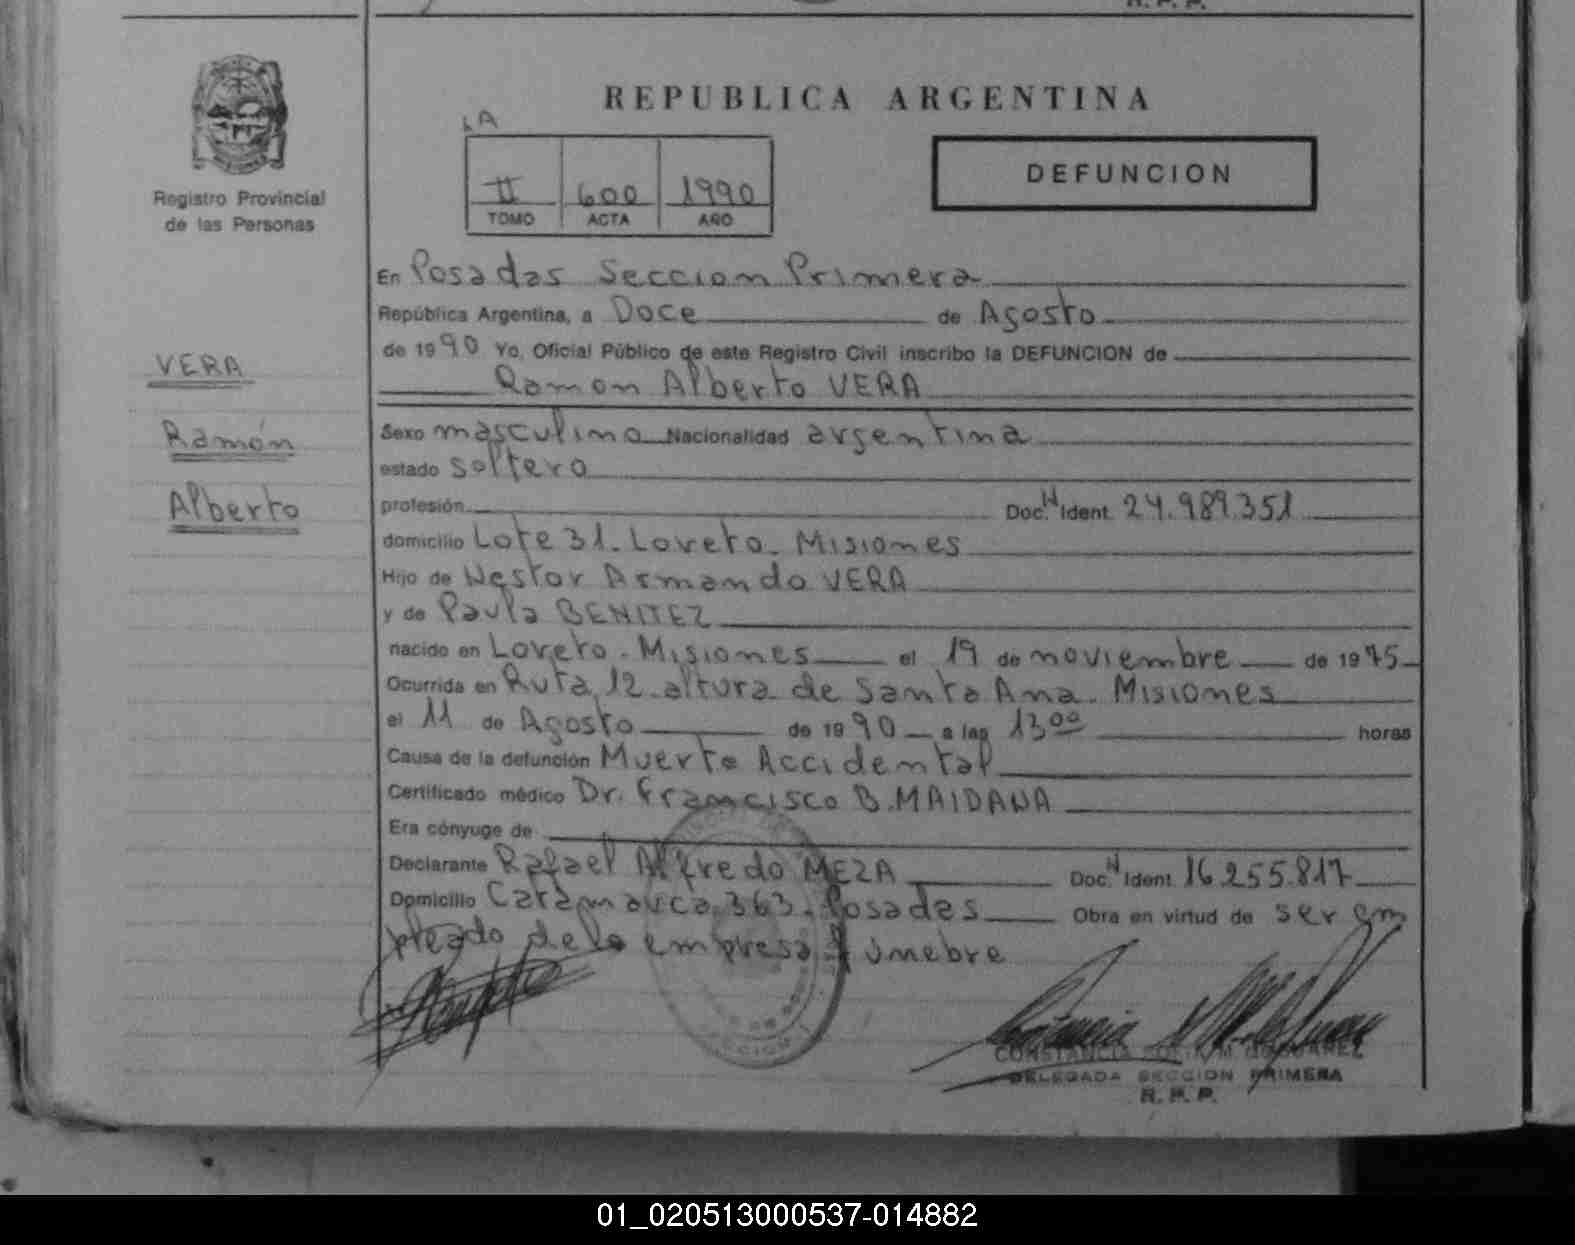 R. P. P.
REPUBLICA ARGENTINA
LA
II 600 1990
TOMO ACTA AÑO
DEFUNCION
Registro Provincial
de las Personas
VERA
Ramón
Alberto
En Posadas Seccion Primera
República Argentina, a Doce de Agosto
de 1990 Yo, Oficial Público de este Registro Civil inscribo la DEFUNCION de
Ramon Alberto VERA
Sexo masculino Nacionalidad argentina
estado soltero
profesión Doc. N Ident. 24.989.351
domicilio Lote 31. Loreto. Misiones
Hijo de Nestor Armando VERA
y de Paula BENITEZ
nacido en Loreto. Misiones el 19 de noviembre de 1975
Ocurrida en Ruta 12. altura de Santa Ana. Misiones
el 11 de Agosto de 1990 a las 13⁰⁰ horas
Causa de la defunción Muerte Accidental
Certificado médico Dr. Francisco B. MAIDANA
Era cónyuge de
Declarante Rafael Alfredo MEZA Doc. N Ident. 16.255.817
Domicilio Catamarca 363. Posadas Obra en virtud de ser em
pleado de la empresa funebre
SECCION
CONSTANCIA
DELEGADA SECCION PRIMERA
R. P. P.
01_020513000537-014882